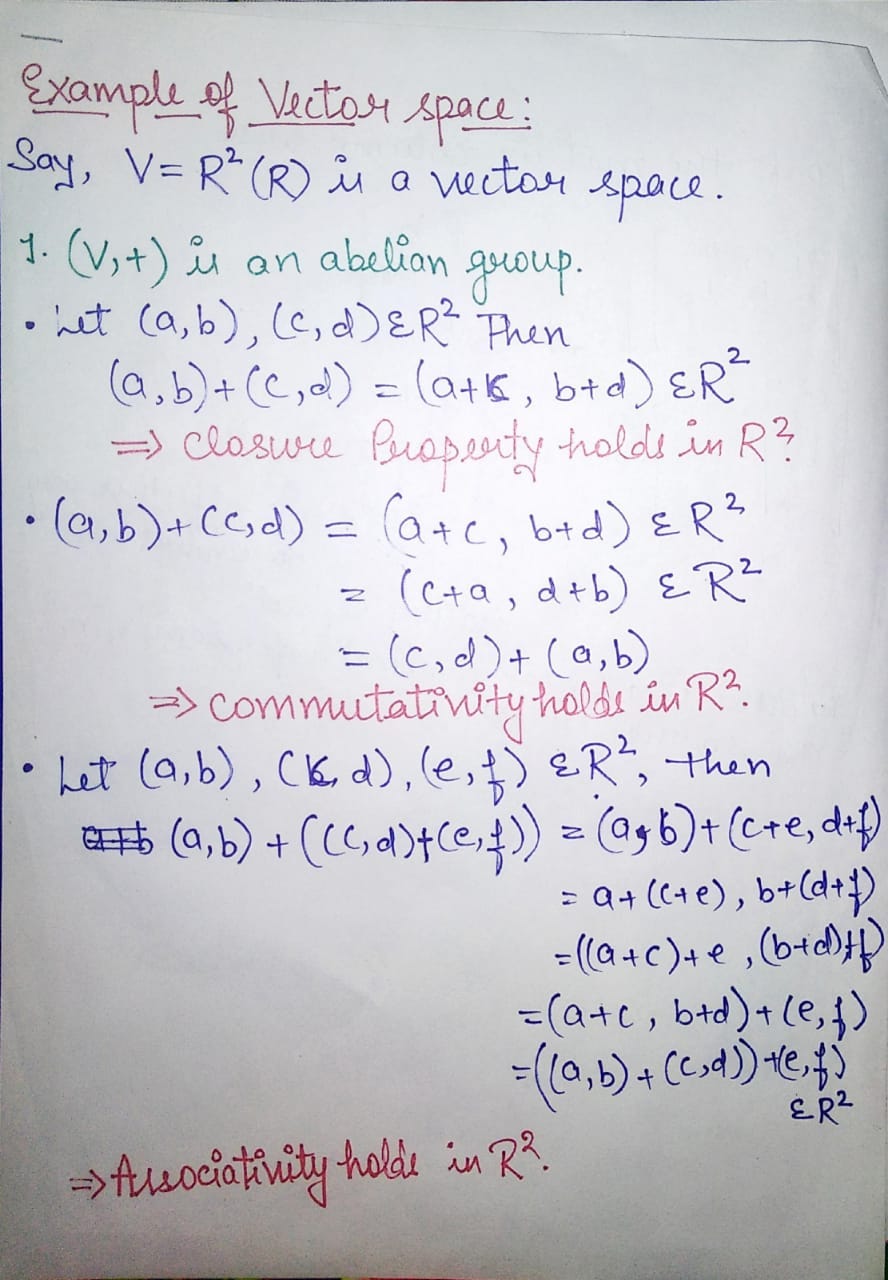 Example of Vector space:
Say, V = R² (R) is a vector space.
1. (V,+) is an abelian group.
• Let (a,b), (c,d) ε R² Then
(a,b)+(c,d) = (a+c, b+d) ε R²
=> Closure Property holds in R².
• (a,b)+(c,d) = (a+c, b+d) ε R²
= (c+a, d+b) ε R²
= (c,d)+(a,b)
=> commutativity holds in R².
• Let (a,b), (c,d), (e,f) ε R², then
(a,b) + ((c,d)+(e,f)) = (a,b)+(c+e, d+f)
= a+(c+e), b+(d+f)
= ((a+c)+e, (b+d)+f)
= (a+c, b+d)+(e,f)
= ((a,b)+(c,d))+(e,f)
ε R²
=> Associativity holds in R².